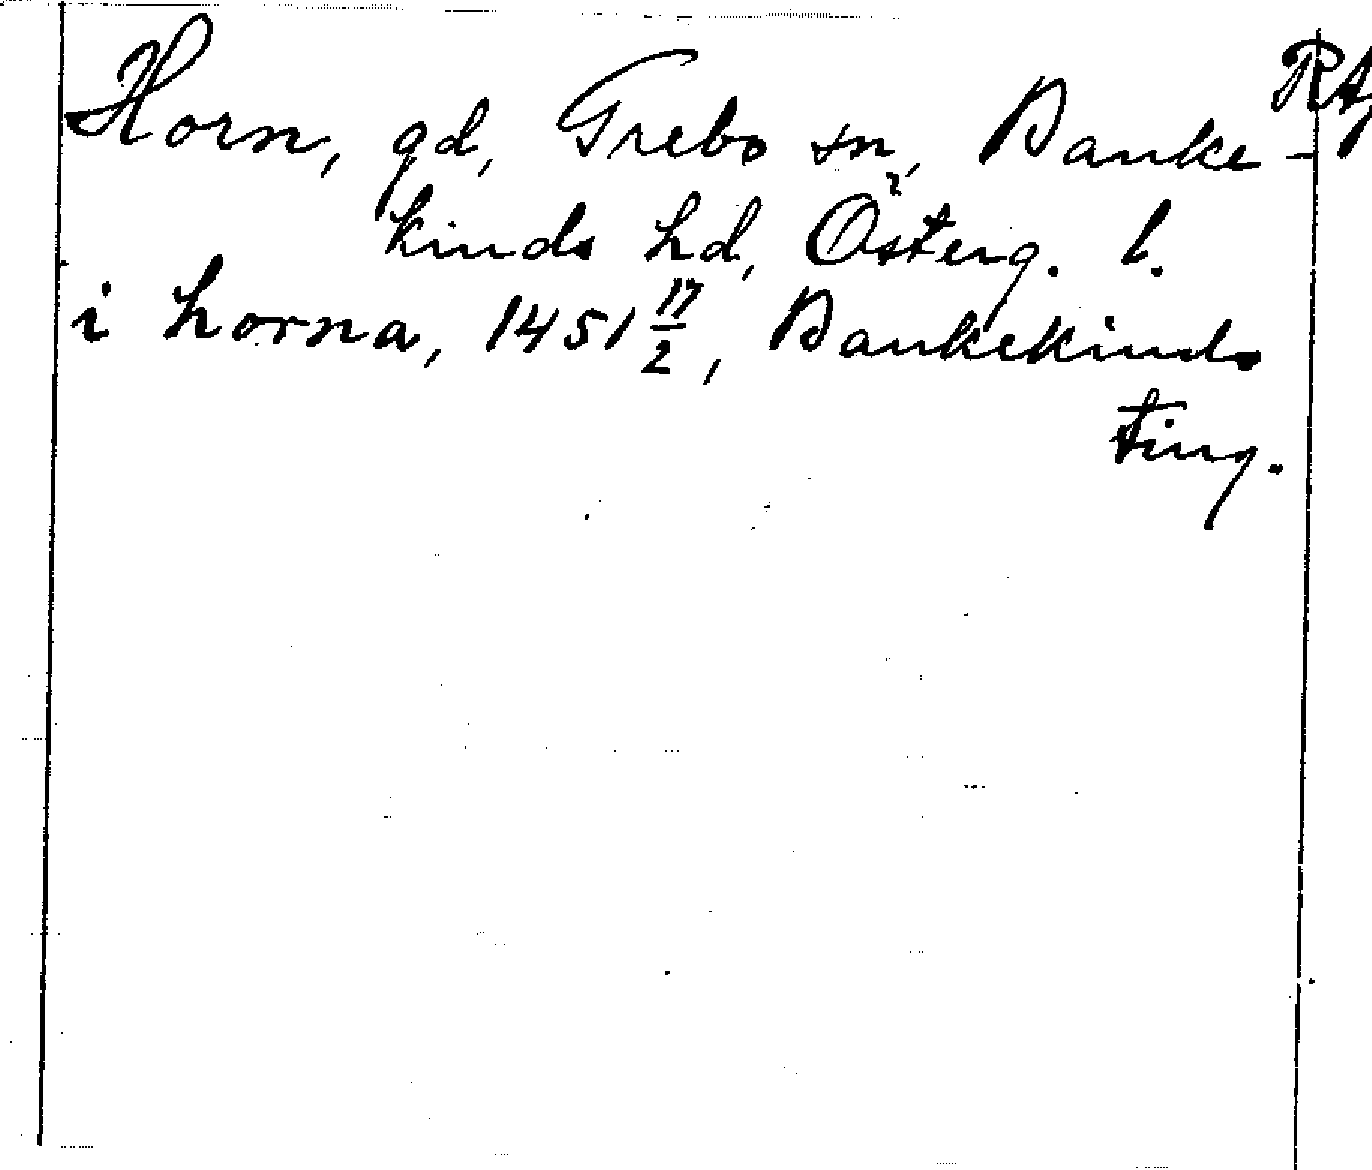 Horn, gd, Grebo sn, Banke-
kinds hd, Österg. l.
i horna, 1451 17/2, Bankekinds
ting.